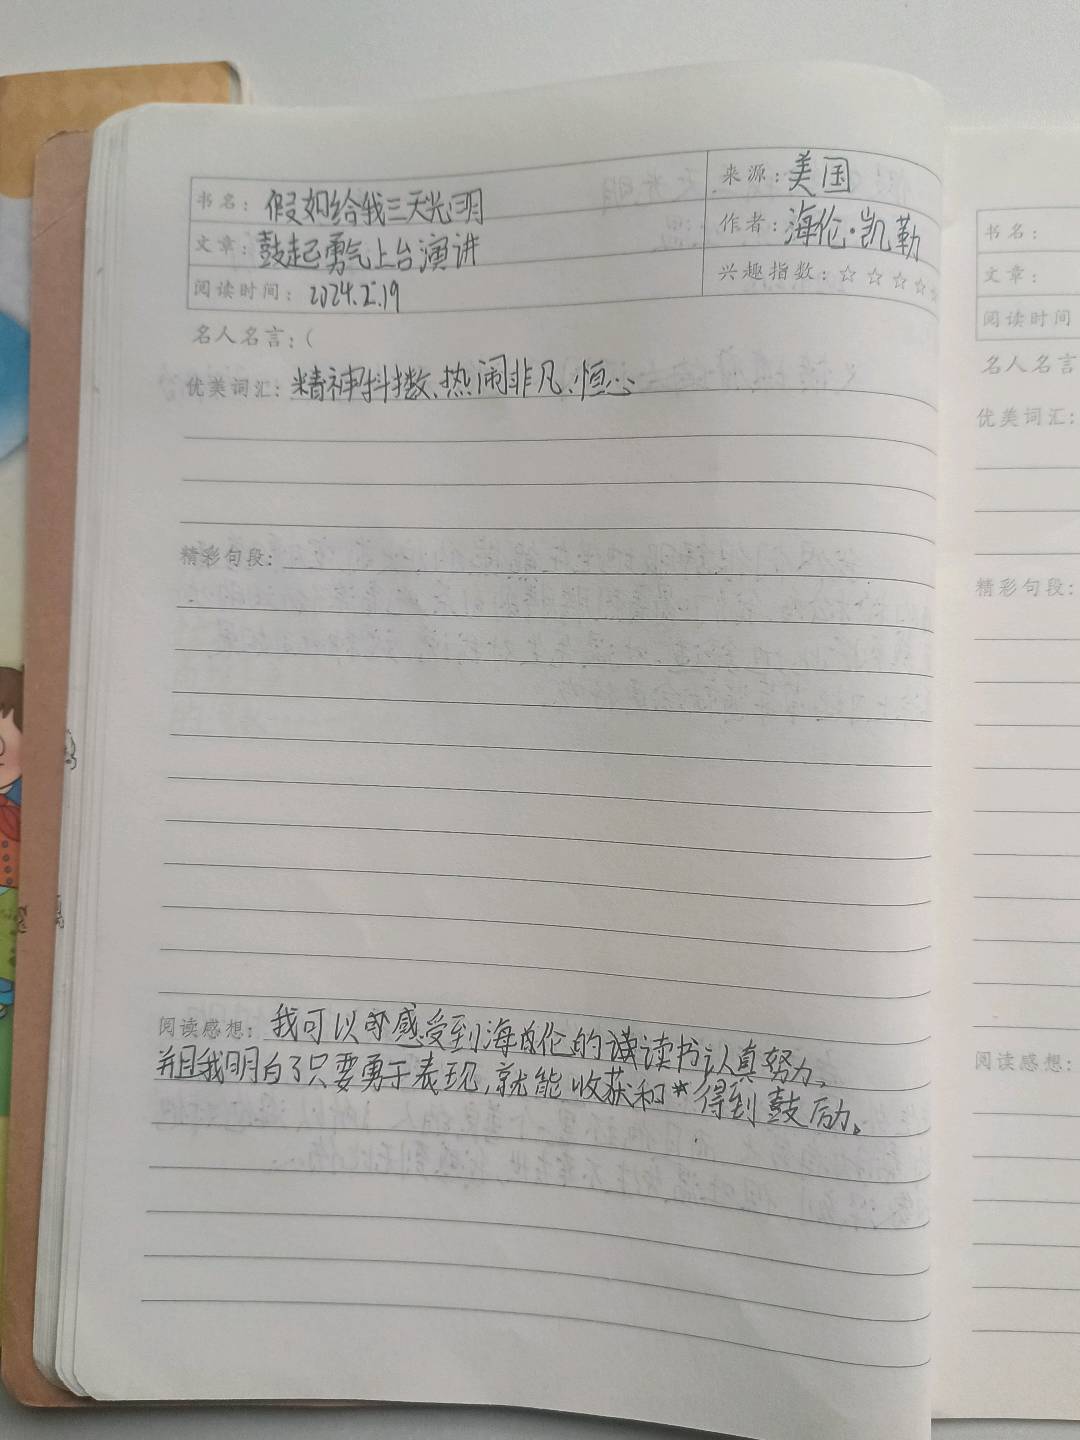 书名：假如给我三天光明
来源：美国
文章：鼓起勇气上台演讲
作者：海伦·凯勒
阅读时间：2024.2.19
兴趣指数：☆☆☆☆☆
名人名言：(
优美词汇：精神抖擞、热闹非凡、恒心
精彩句段：
阅读感想：我可以感受到海伦的读书认真努力，
并且我明白了只要勇于表现，就能收获和*得到鼓励。
书名：
文章：
阅读时间
名人名言
优美词汇：
精彩句段：
阅读感想：